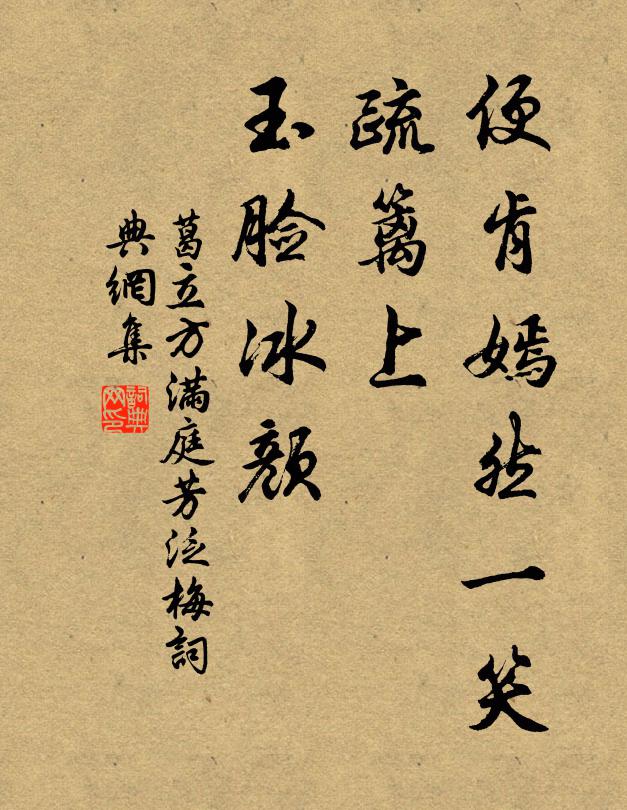 便肯嫣然一笑
疏篱上
玉脸冰颜
葛立方滿庭芳泛梅詞
典網集
詞典
网印